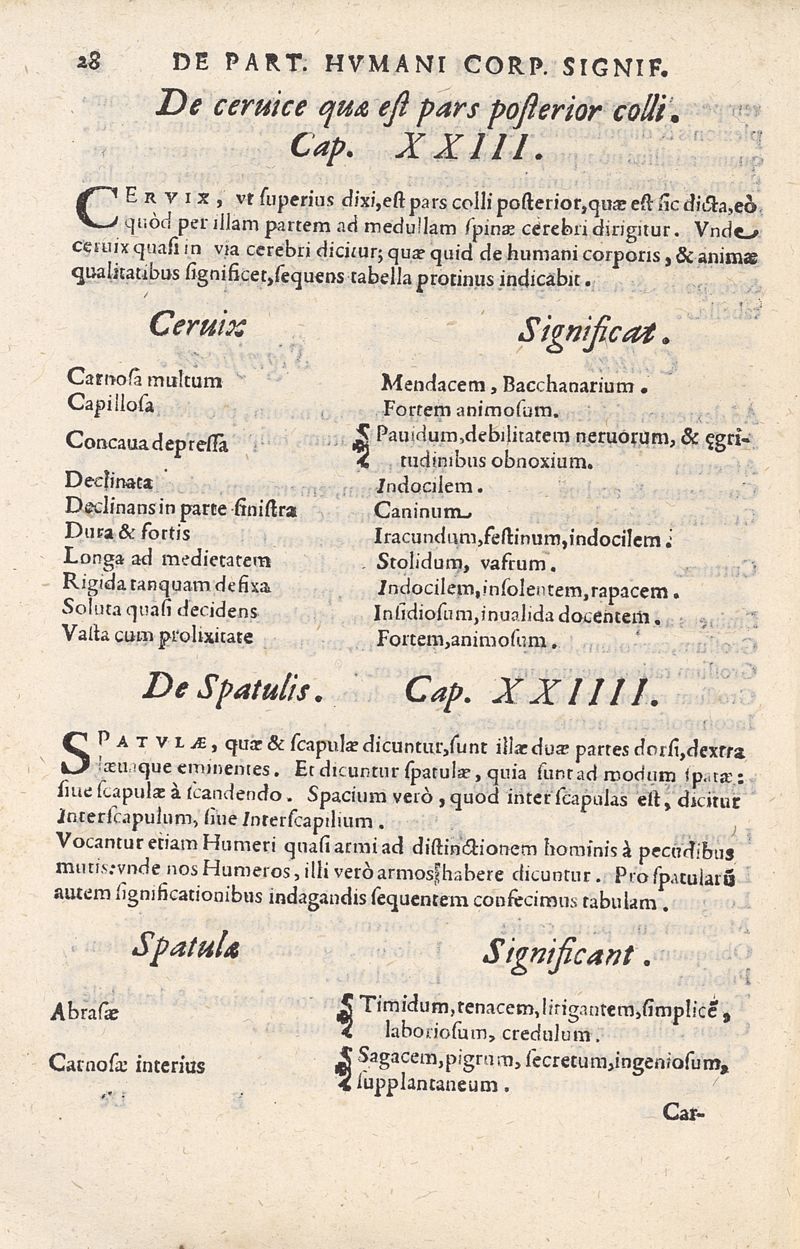 28 DE PART. HVMANI CORP. SIGNIF.
De ceruice quæ eſt pars poſterior colli.
Cap. XXIII.
CERVIX, vt ſuperius dixi, eſt pars colli poſterior, quæ eſt ſic dicta, eò
quòd per illam partem ad medullam ſpinæ cerebri dirigitur. Vnde
ceruix quaſi in via cerebri dicitur; quæ quid de humani corporis, & animæ
qualitatibus ſignificet, ſequens tabella protinus indicabit.
Ceruix Significat.
Carnoſa multum Mendacem, Bacchanarium.
Capilloſa Fortem animoſum.
Concaua depreſſa { Pauidum, debilitatem neruorum, & ęgri-
tudinibus obnoxium.
Declinata Indocilem.
Declinans in parte ſiniſtra Caninum
Dura & fortis Iracundum, feſtinum, indocilem.
Longa ad medietatem Stolidum, vafrum.
Rigida tanquam defixa Indocilem, inſolentem, rapacem.
Soluta quaſi decidens Inſidioſum, inualida docentem.
Vaſta cum prolixitate Fortem, animoſum.
De Spatulis. Cap. XXIIII.
SPATVLÆ, quæ & ſcapulæ dicuntur, ſunt illæ duæ partes dorſi, dextra
læuaque eminentes. Et dicuntur ſpatulæ, quia ſunt ad modum ſpatæ:
ſiue ſcapulæ à ſcandendo. Spacium verò, quod inter ſcapulas eſt, dicitur
Interſcapulum, ſiue Interſcapilium.
Vocantur etiam Humeri quaſi armi ad diſtinctionem hominis à pecudibus
mutis: vnde nos Humeros, illi verò armos habere dicuntur. Pro ſpatularũ
autem ſignificationibus indagandis ſequentem confecimus tabulam.
Spatulæ Significant.
Abraſæ { Timidum, tenacem, litigantem, ſimplicẽ,
laborioſum, credulum.
Carnoſæ interius { Sagacem, pigrum, ſecretum, ingenioſum,
ſupplantaneum.
Car-